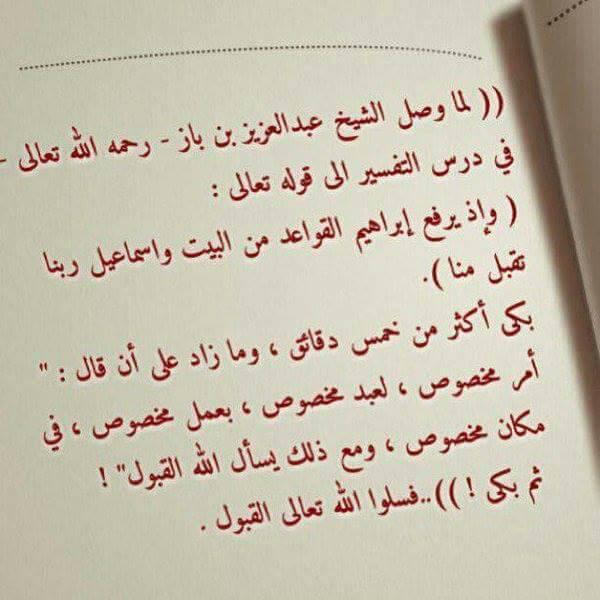 (( لما وصل الشيخ عبدالعزيز بن باز - رحمه الله تعالى -
في درس التفسير الى قوله تعالى :
( وإذ يرفع إبراهيم القواعد من البيت واسماعيل ربنا
تقبل منا ).
بكى أكثر من خمس دقائق ، وما زاد على أن قال : "
أمر مخصوص ، لعبد مخصوص ، بعمل مخصوص ، في
مكان مخصوص ، ومع ذلك يسأل الله القبول" !
ثم بكى ! ))..فسلوا الله تعالى القبول .